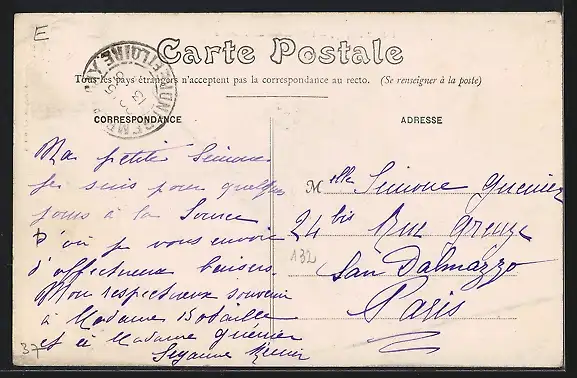 E
Carte Postale
Tous les pays étrangers n'acceptent pas la correspondance au recto. (Se renseigner à la poste)
CORRESPONDANCE
ADRESSE
Ma petite Simone
Je suis pour quelques
jours à la Source
D'où je vous envoie
d'affectueux baisers.
Mon respectueux souvenir
à Madame Botaille
et à Madame Guénier
Suzanne
Melle Simone Guenier
24 bis Rue Greuze
132
San Dalmazzo
Paris
37